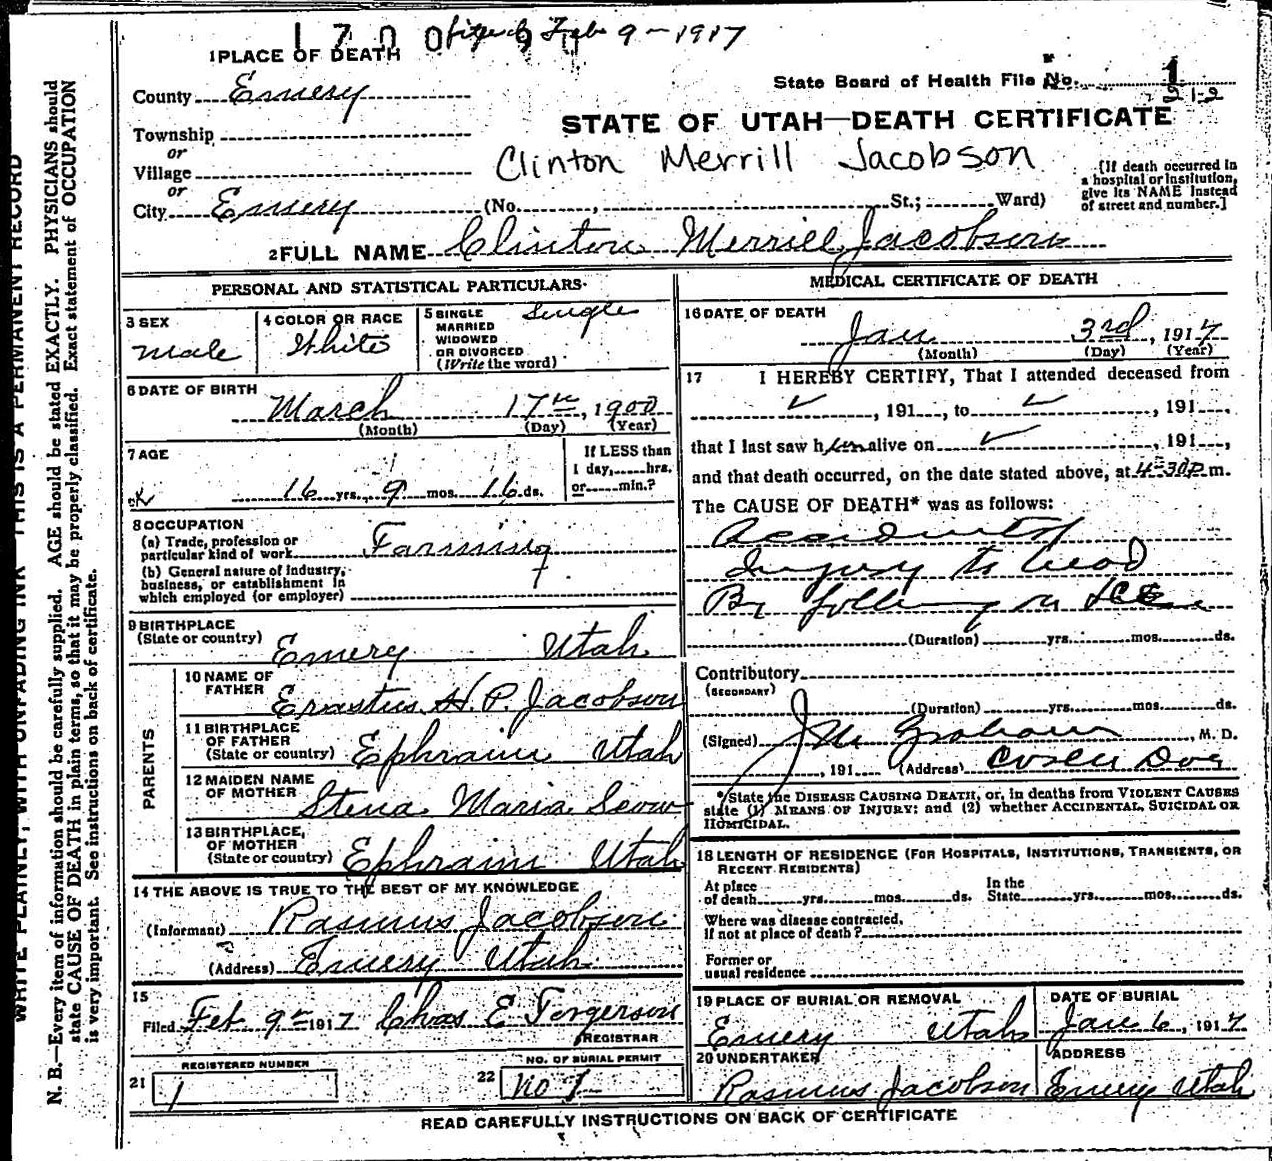 1700 90 filed Feb 9-1917
1 PLACE OF DEATH
State Board of Health File No. 1
County Emery
STATE OF UTAH—DEATH CERTIFICATE
Township
or
Village
Clinton Merrill Jacobson
[If death occurred in a hospital or institution, give its NAME instead of street and number.]
or
City Emery (No. , St.; Ward)
2 FULL NAME Clinton Merrill Jacobson
PERSONAL AND STATISTICAL PARTICULARS
3 SEX
Male
4 COLOR OR RACE
White
5 SINGLE
MARRIED
WIDOWED
OR DIVORCED
(Write the word)
Single
6 DATE OF BIRTH
March 17th, 1900
(Month) (Day) (Year)
7 AGE
16 yrs. 9 mos. 16 ds.
If LESS than
1 day, hrs.
or min.?
8 OCCUPATION
(a) Trade, profession or
particular kind of work Farming
(b) General nature of industry,
business, or establishment in
which employed (or employer)
9 BIRTHPLACE
(State or country) Emery Utah
PARENTS
10 NAME OF
FATHER Erastus H. P. Jacobson
11 BIRTHPLACE
OF FATHER
(State or country) Ephraim Utah
12 MAIDEN NAME
OF MOTHER Stena Maria
13 BIRTHPLACE,
OF MOTHER
(State or country) Ephraim Utah
14 THE ABOVE IS TRUE TO THE BEST OF MY KNOWLEDGE
(Informant) Rasmus Jacobson
(Address) Emery Utah
15
Filed Feb 9th 1917 Chas E Torgerson
REGISTRAR
REGISTERED NUMBER
21 1
NO. OF BURIAL PERMIT
22 No 1
MEDICAL CERTIFICATE OF DEATH
16 DATE OF DEATH
Jan 3rd, 1917
(Month) (Day) (Year)
17 I HEREBY CERTIFY, That I attended deceased from
✓, 191 , to ✓, 191 ,
that I last saw him alive on ✓, 191 ,
and that death occurred, on the date stated above, at 4-30 P m.
The CAUSE OF DEATH* was as follows:
Accidental
Injury to head
By falling on ICE
(Duration) yrs. mos. ds.
Contributory
(SECONDARY)
(Duration) yrs. mos. ds.
(Signed) J M Graham, M. D.
, 191 (Address)
*State the DISEASE CAUSING DEATH, or, in deaths from VIOLENT CAUSES
state (1) MEANS OF INJURY; and (2) whether ACCIDENTAL, SUICIDAL OR
HOMICIDAL.
18 LENGTH OF RESIDENCE (FOR HOSPITALS, INSTITUTIONS, TRANSIENTS, OR
RECENT RESIDENTS)
At place
of death yrs. mos. ds. In the
State yrs. mos. ds.
Where was disease contracted,
if not at place of death?
Former or
usual residence
19 PLACE OF BURIAL OR REMOVAL
Emery Utah
DATE OF BURIAL
Jan 6, 1917
20 UNDERTAKER
Rasmus Jacobson
ADDRESS
Emery Utah
READ CAREFULLY INSTRUCTIONS ON BACK OF CERTIFICATE
WRITE PLAINLY, WITH UNFADING INK—THIS IS A PERMANENT RECORD
N. B.—Every item of information should be carefully supplied. AGE should be stated EXACTLY. PHYSICIANS should
state CAUSE OF DEATH in plain terms, so that it may be properly classified. Exact statement of OCCUPATION
is very important. See instructions on back of certificate.